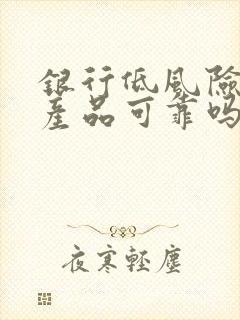 銀行低風險
產品可靠嗎
夜寒輕塵